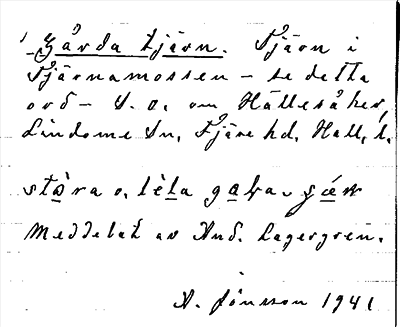 Gårda tjärn. Tjärn i
Tjärnamossen - se detta
ord - S. o. om Hällesåker,
Lindome sn, Fjäre hd, Hall. l.
stòra o. lèta
Meddelat av And. Lagergren.
A. Jönsson 1941